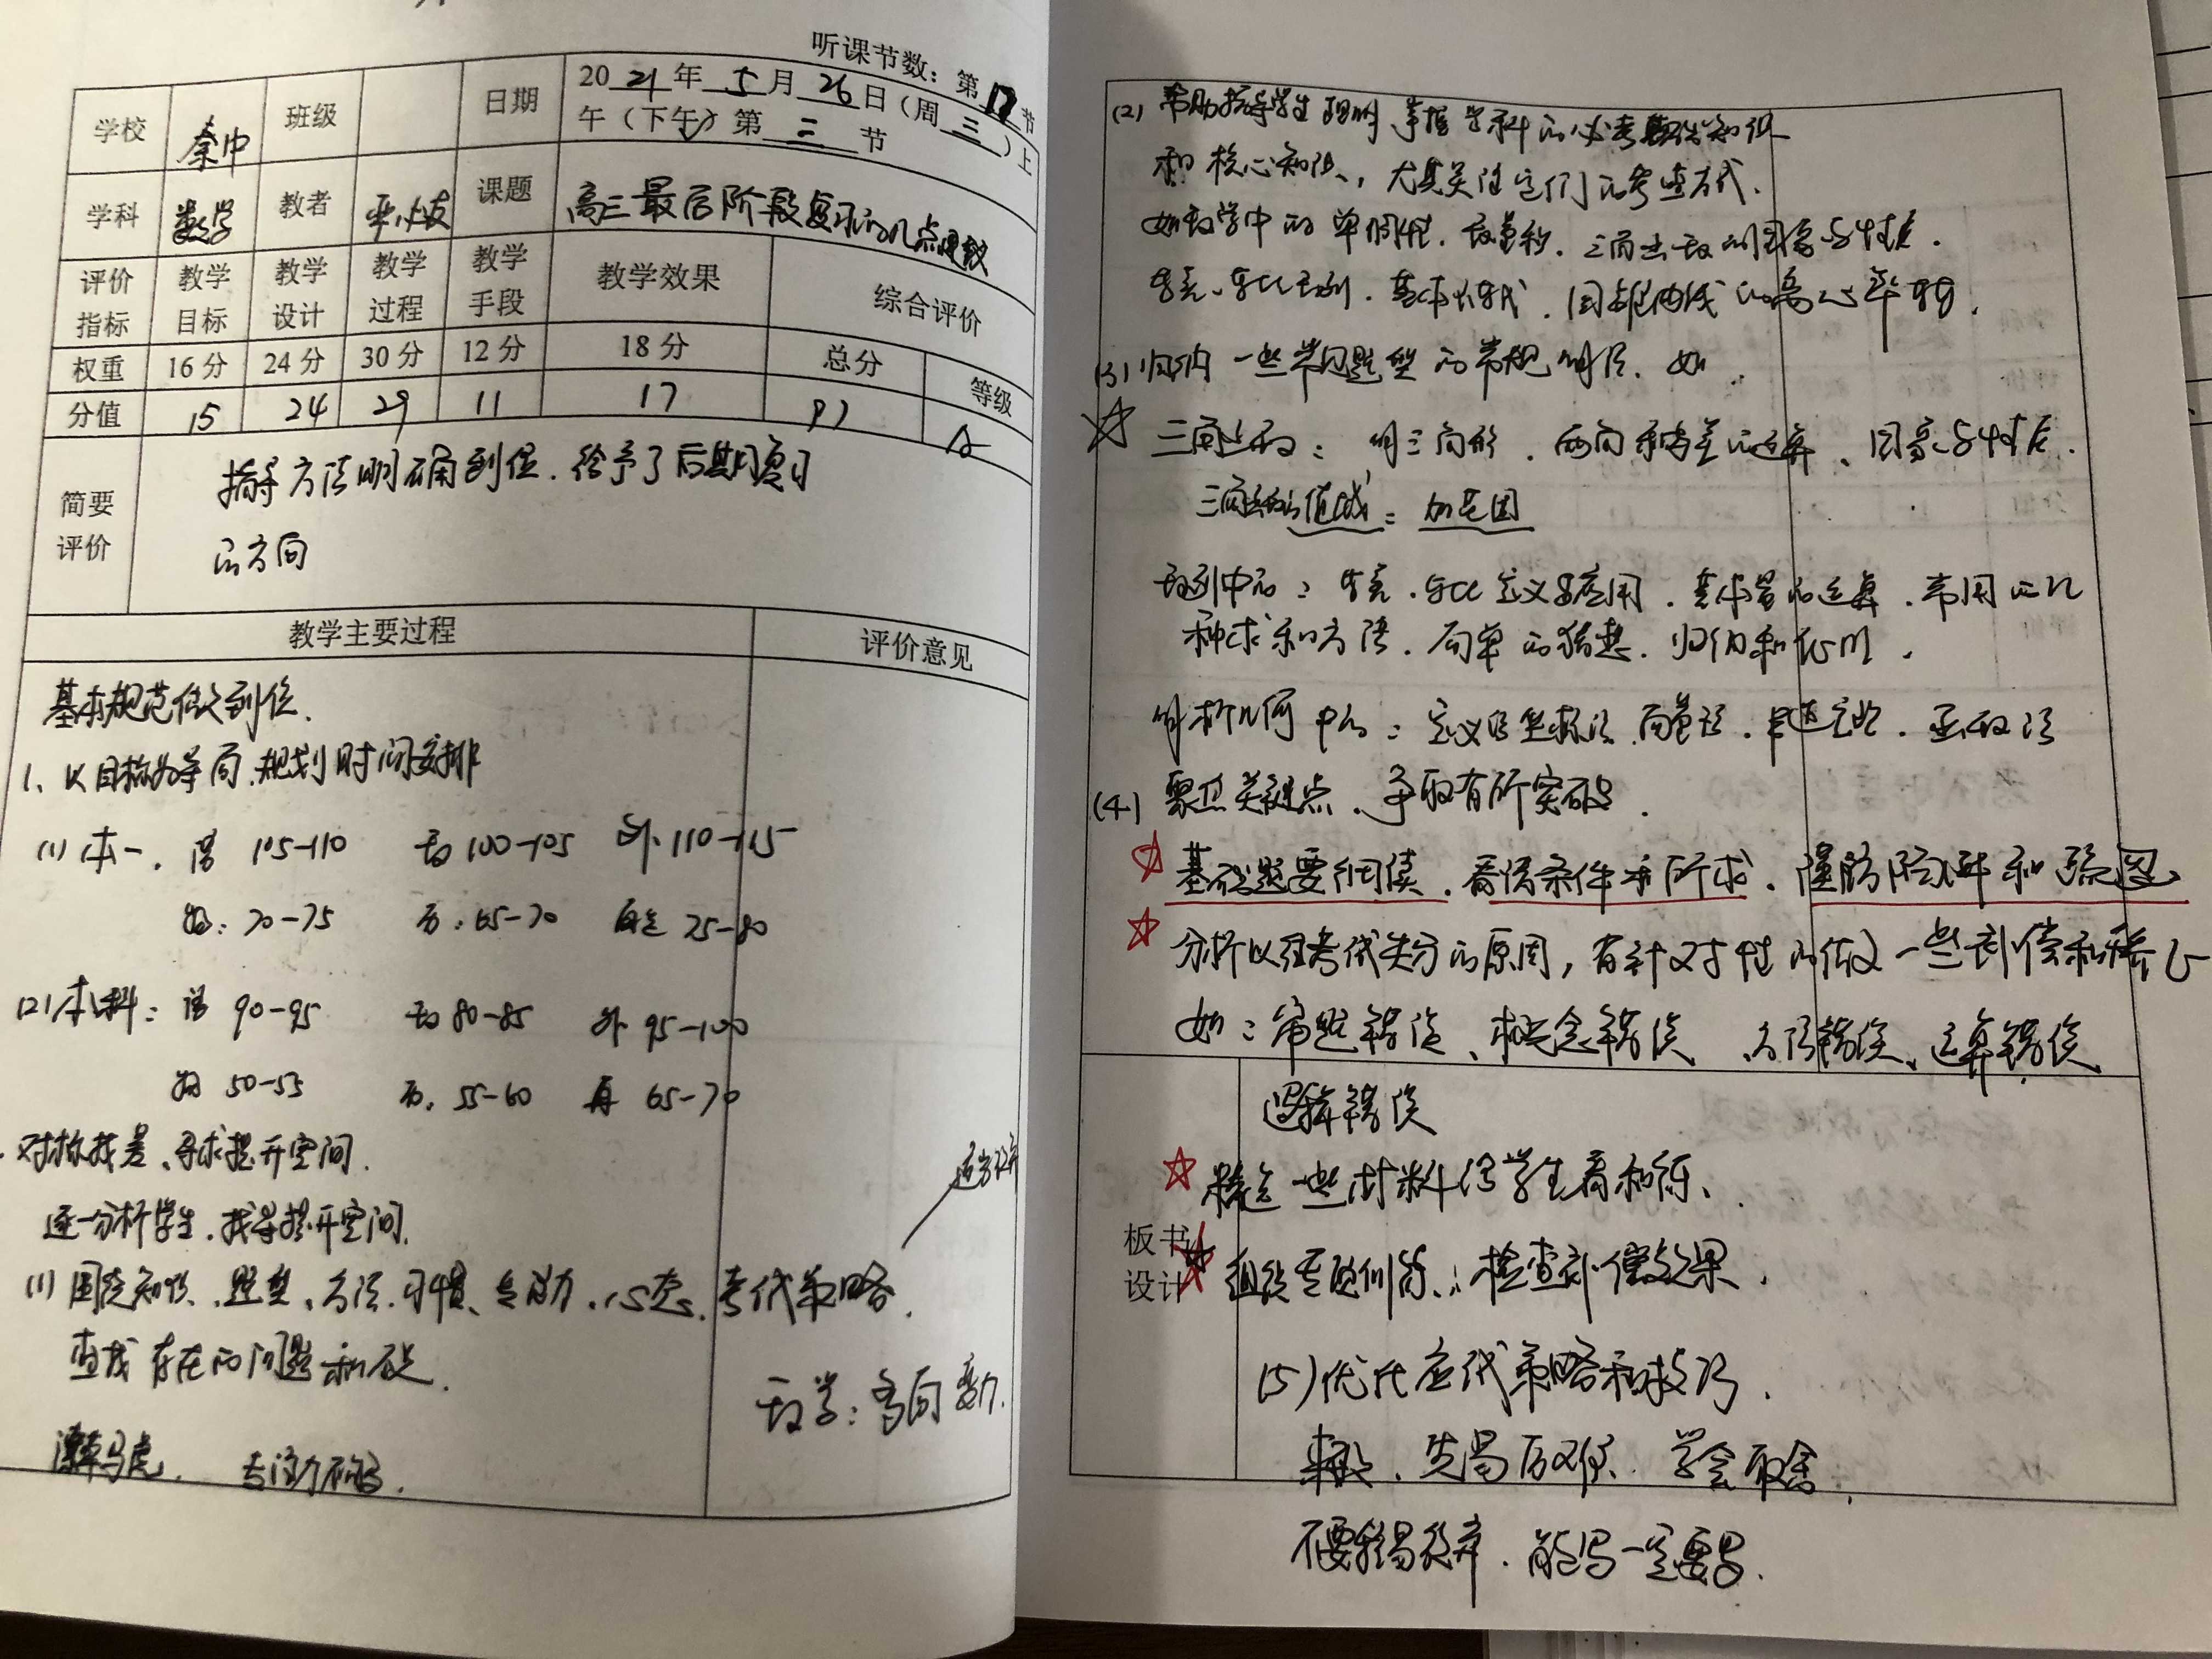 听课节数：第12节
学校 秦中 班级 日期 2021年5月26日（周三）上午（下午√）第三节
学科 数学 教者 课题 高三最后阶段复习的几点建议
评价指标 教学目标 教学设计 教学过程 教学手段 教学效果 综合评价
权重 16分 24分 30分 12分 18分 总分 等级
分值 15 24 29 11 17 97 A
简要评价 指导方法明确到位.给予了后期复习
的方向
教学主要过程 评价意见
基本规范做到位.
1、以目标为导向.规划时间安排
(1) 本一. 语 105-110 数 100-105 外 110-115
物: 70-75 历: 65-70 再选 75-80
(2) 本科: 语 90-95 数 80-85 外 95-100
物 50-55 历. 55-60 再 65-70
对标找差、寻求提升空间.
逐一分析学生.找寻提升空间.
(1) 围绕知识、题型、方法.习惯、专注力、心态.考试策略.
查找存在的问题和不足.
数学:多问
潦草马虎. 专注力不够.
(2) 帮助指导学生 理解 掌握学科的必考基础知识
和核心知识,尤其关注它们的考查方式.
如数学中的单调性.数量积.三角函数的图象与性质.
等差、等比数列.基本不等式.圆锥曲线的离心率等.
(3) 归纳一些常见题型的常规解法.如
☆ 三角函数: 解三角形.两角和与差的运算、图象与性质.
三角函数的值域: 加范围
数列中的: 等差.等比定义与应用.基本量的运算.常用的几
种求和方法.简单的猜想.归纳和证明.
解析几何中的: 定义法 坐标法.向量法.
(4) 聚焦关键点、争取有所突破.
☆ 基础题要细读.看清条件和所求.谨防陷阱和
☆ 分析以往考试失分的原因,有针对性的做一些补偿和矫正
如: 审题错误、概念错误、方法错误、运算错误
逻辑错误
☆ 精选一些材料给学生看和练、
板书设计
☆ 组织专题训练.检查补偿效果.
(5) 优化应试策略和技巧.
先易后难、学会取舍.
不要轻易放弃.能写一定要写.